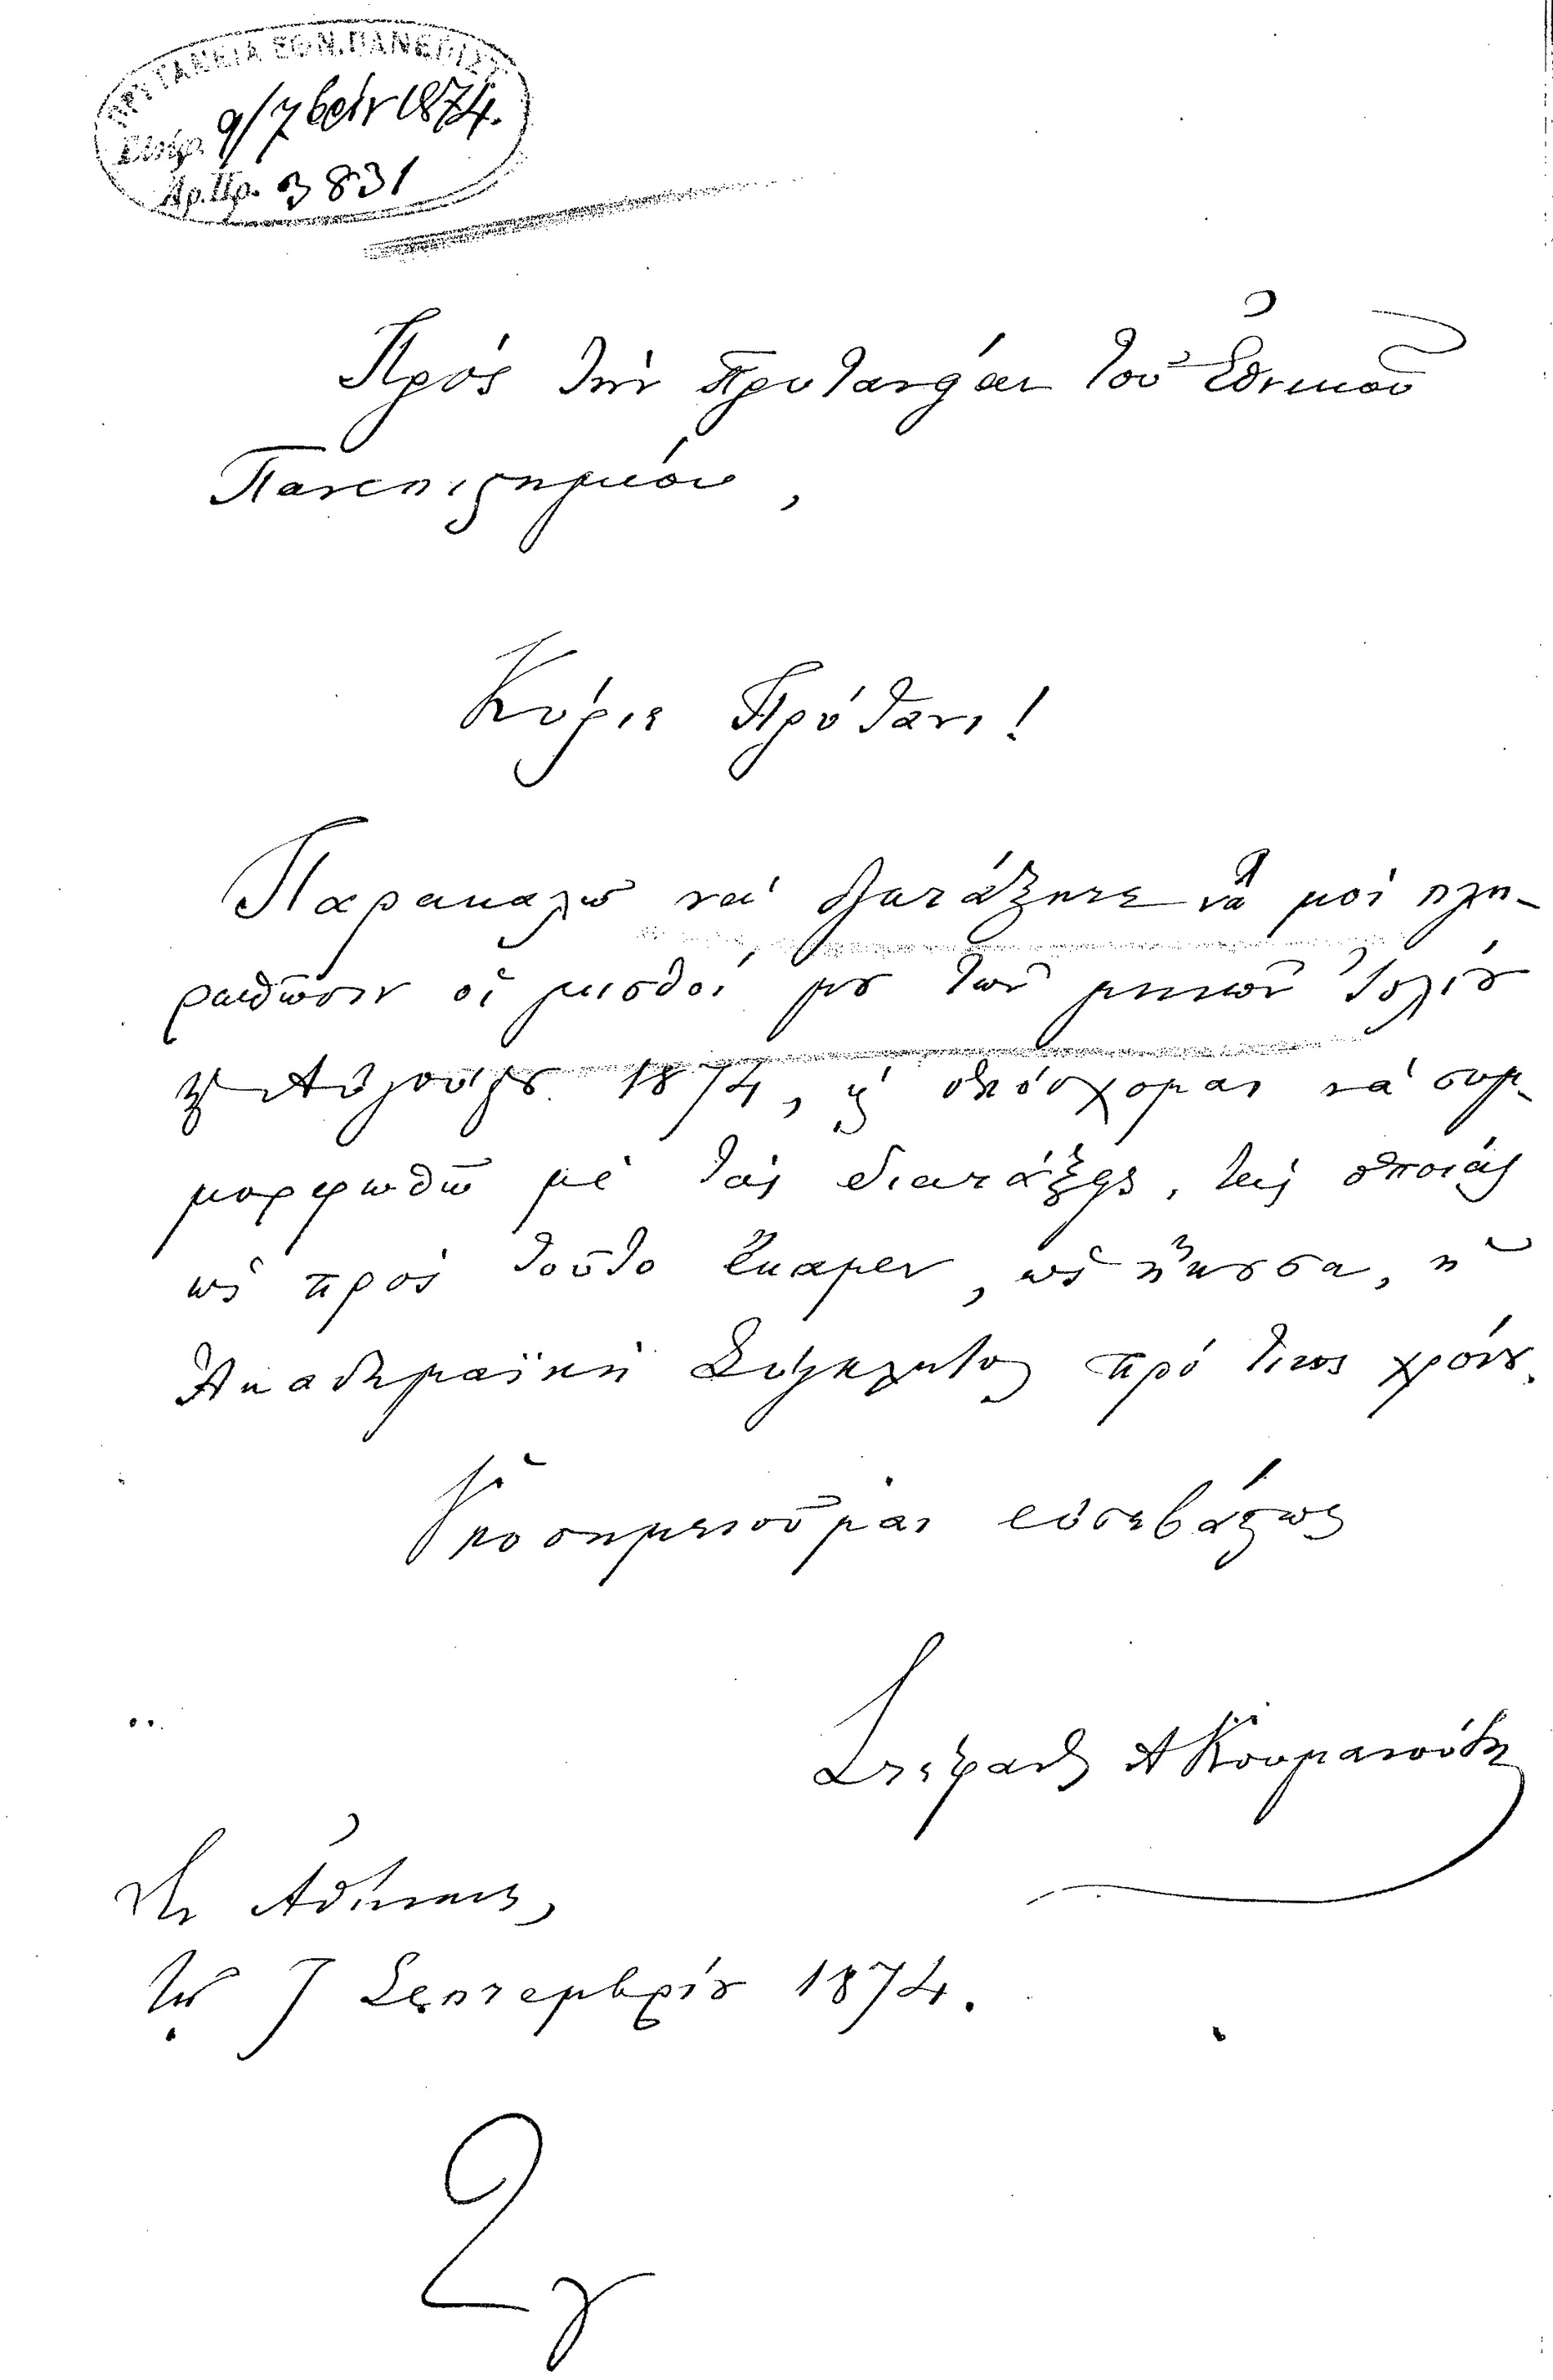 ΠΡΥΤΑΝΕΙΑ ΕΘΝ. ΠΑΝΕΠΙΣΤ.
Εἰσήχ. 9/7βρίου 1874.
Ἀρ. Πρ. 3831
Πρὸς τὴν Πρυτανείαν τοῦ Ἐθνικοῦ
Πανεπιστημίου,
Κύριε Πρύτανι!
Παρακαλῶ νὰ διατάξητε νὰ μοὶ πλη-
ρωθῶσιν οἱ μισθοί μου τῶν μηνῶν Ἰουλίου
καὶ Αὐγούστου 1874, καὶ ὑπόσχομαι νὰ συμ-
μορφωθῶ μὲ τὰς διατάξεις, τὰς ὁποίας
ὡς πρὸς τοῦτο ἔκαμεν, ὡς ἤκουσα, ἡ
Ἀκαδημαϊκὴ Σύγκλητος πρό τινος χρόνου.
Ὑποσημειοῦμαι εὐσεβάστως
Στέφανος Α Κουμανούδης
Ἐν Ἀθήναις,
τῇ 7 Σεπτεμβρίου 1874.